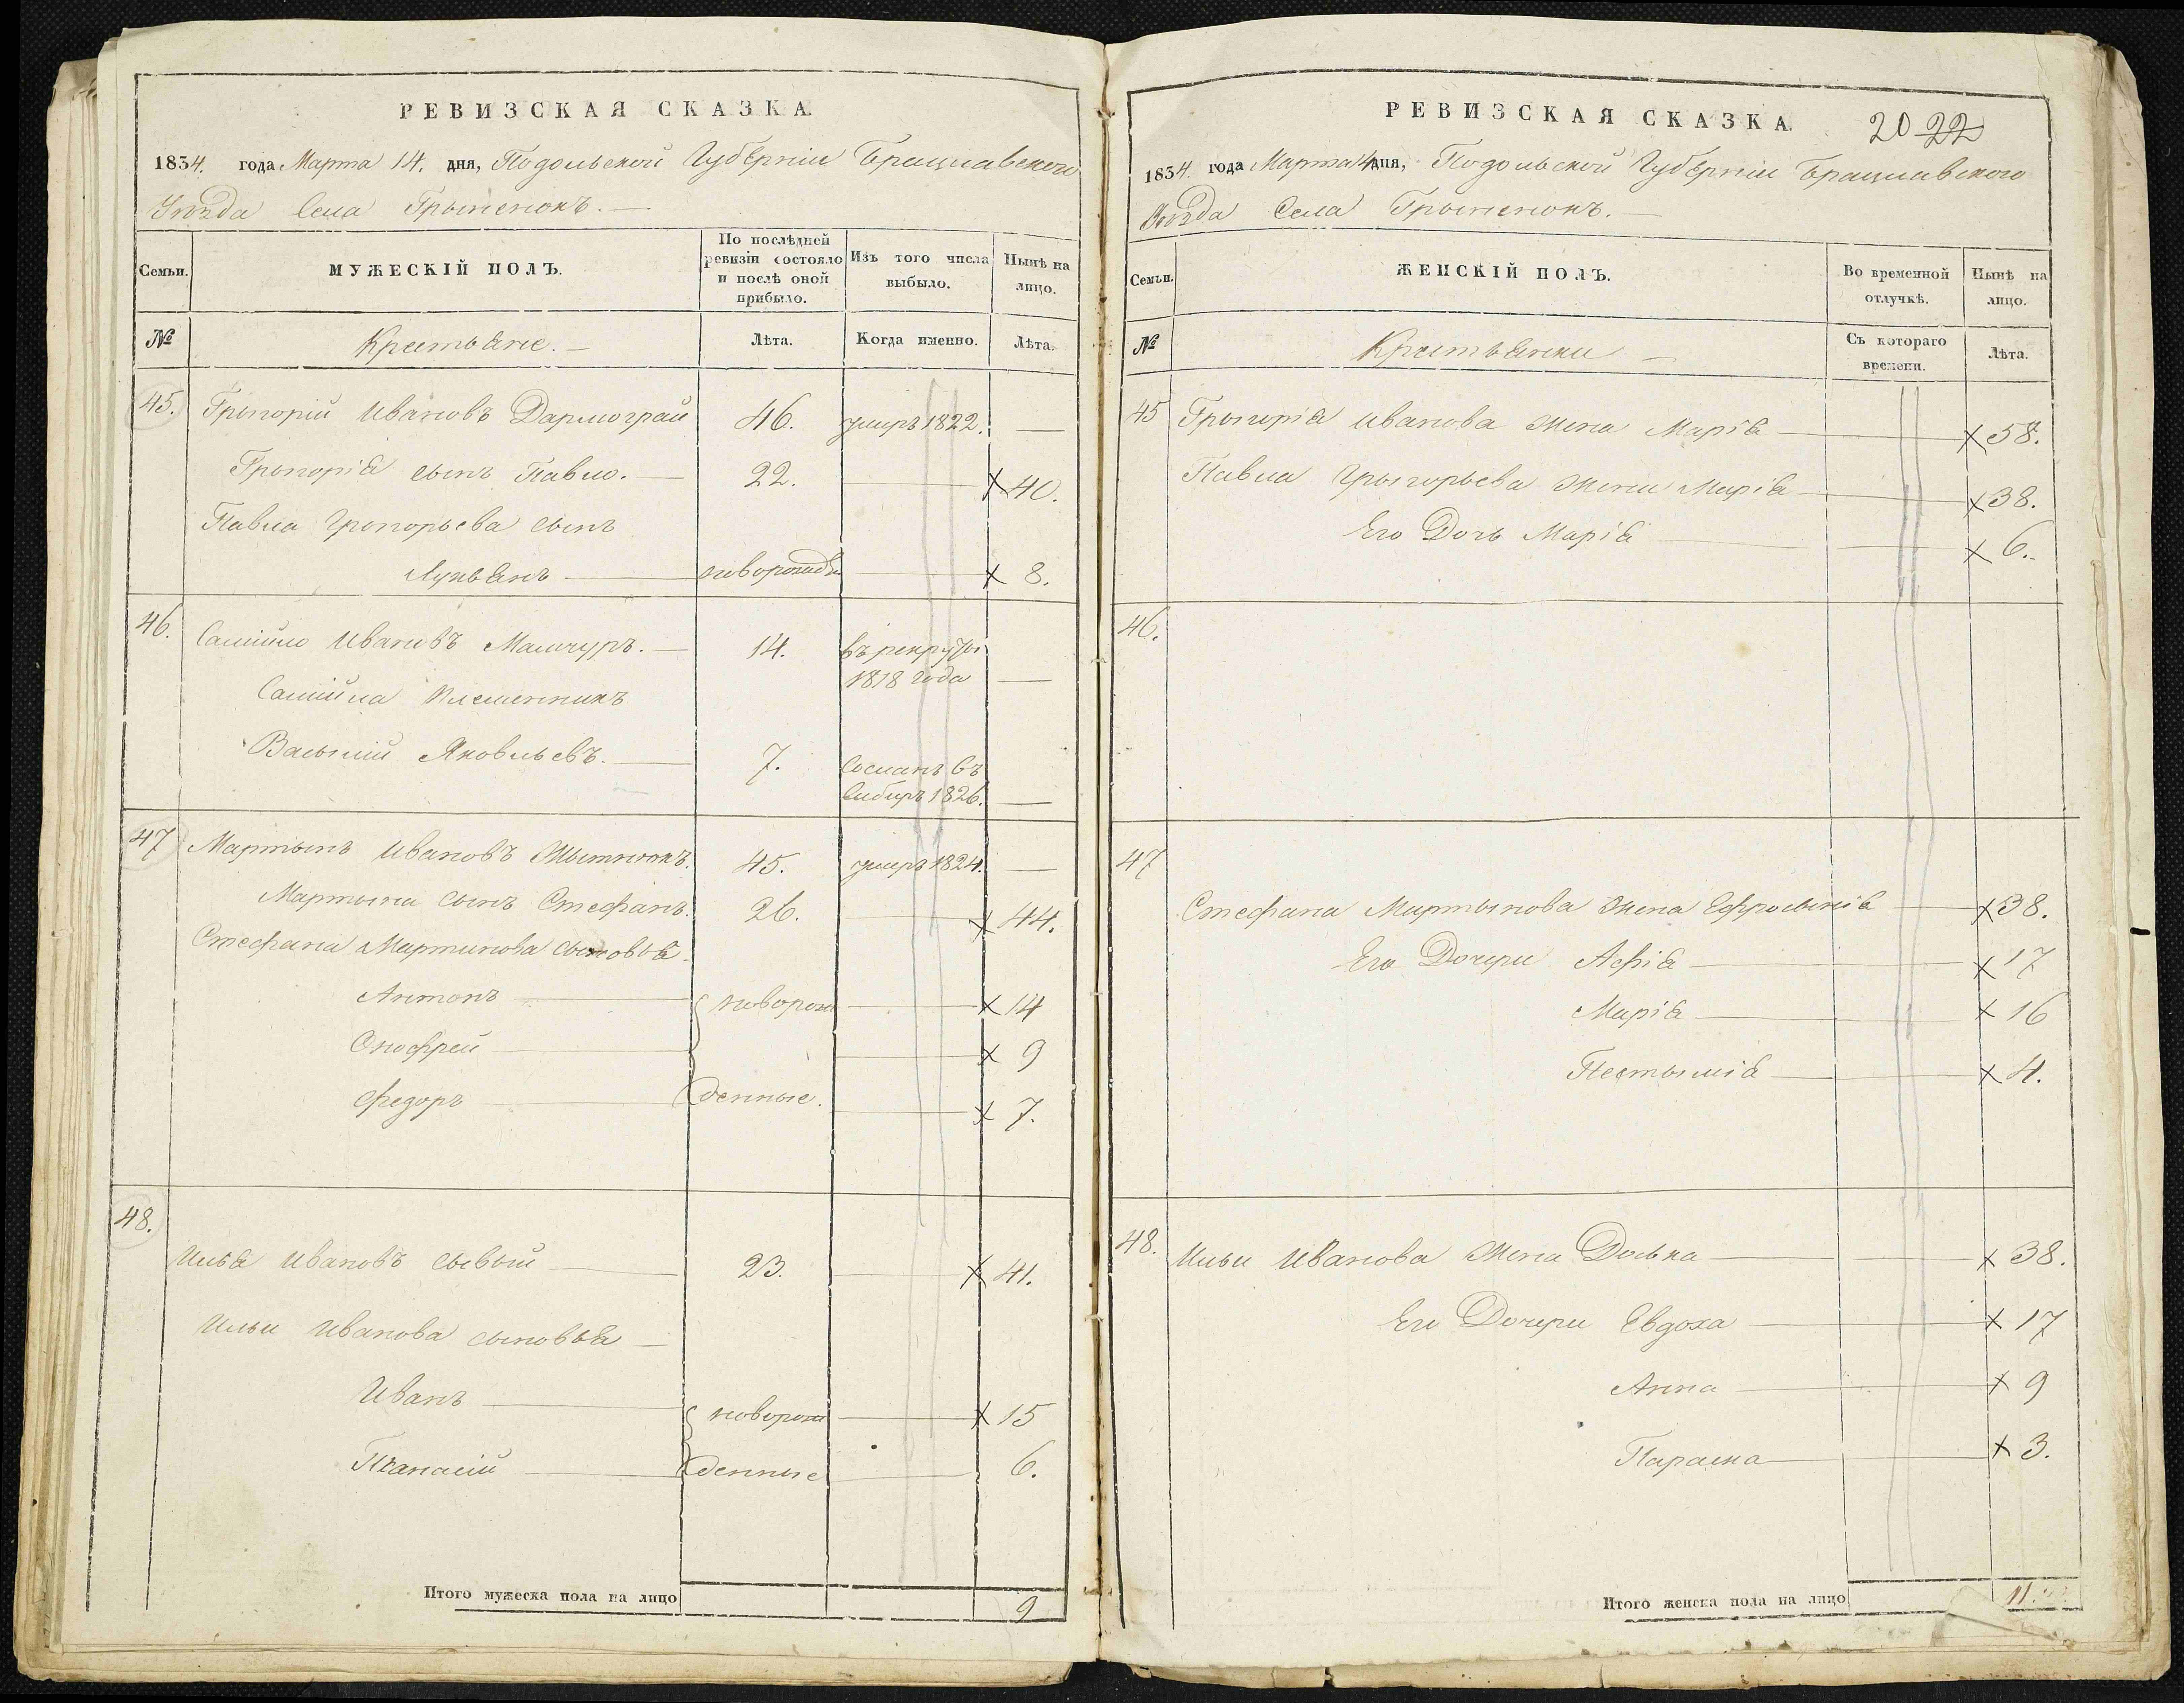 РЕВИЗСКАЯ СКАЗКА.
1834. года Марта 14. дня, Подольской Губерніи Брацлавского
Уѣзда Села Грыненокъ. —
Семьи.
МУЖЕСКІЙ ПОЛЪ.
По послѣдней ревизіи состояло и послѣ оной прибыло.
Изъ того числа выбыло.
Нынѣ на лицо.
№
Крестьяне. —
Лѣта.
Когда именно.
Лѣта.
45. Грыгорій Ивановъ Дармограй 46. умиръ 1822. —
Грыгорія сынъ Павло. — 22. — х 40.
Павла Грыгорьева сынъ
Лукьянъ — новорожден — х 8.
46. Самійло Ивановъ Мамчуръ. — 14. въ рекруты
1818 года —
Самійла племенникъ
Васылій Яковльевъ. — 7. Сосланъ въ
Сибиръ 1826. —
47 Мартынъ Ивановъ 45. умиръ 1824. —
Мартына сынъ Стефанъ. 26. — х 44.
Стефана Мартинова сыновья.
Антонъ — новорож — х 14
Онофрей — х 9
Федоръ — денные. — х 7.
48.
Илья Ивановъ Сывый — 23. — х 41.
Ильи Иванова сыновья —
Иванъ — новорож — х 15
Панасій — денные — 6.
Итого мужеска пола на лицо 9
РЕВИЗСКАЯ СКАЗКА. 20 22
1834. года Марта 14 дня, Подольской Губерніи Брацлавского
Уѣзда Села Грыненокъ. —
Семьи.
ЖЕНСКІЙ ПОЛЪ.
Во временной отлучкѣ.
Нынѣ на лицо.
№
Крестьянки —
Съ котораго времени.
Лѣта.
45 Грыгорія Иванова жена Марія — х 58.
Павла Грыгорьева жена Марія — х 38.
Его Дочь Марія — х 6.
46.
47
Стефана Мартынова жена Ефросынія — х 38.
Его Дочери Афія — х 17
Марія — х 16
— х 4.
48. Ильи Иванова жена Доська — х 38.
Его Дочери Евдоха — х 17
Анна — х 9
Параска — х 3.
Итого женска пола на лицо 11.